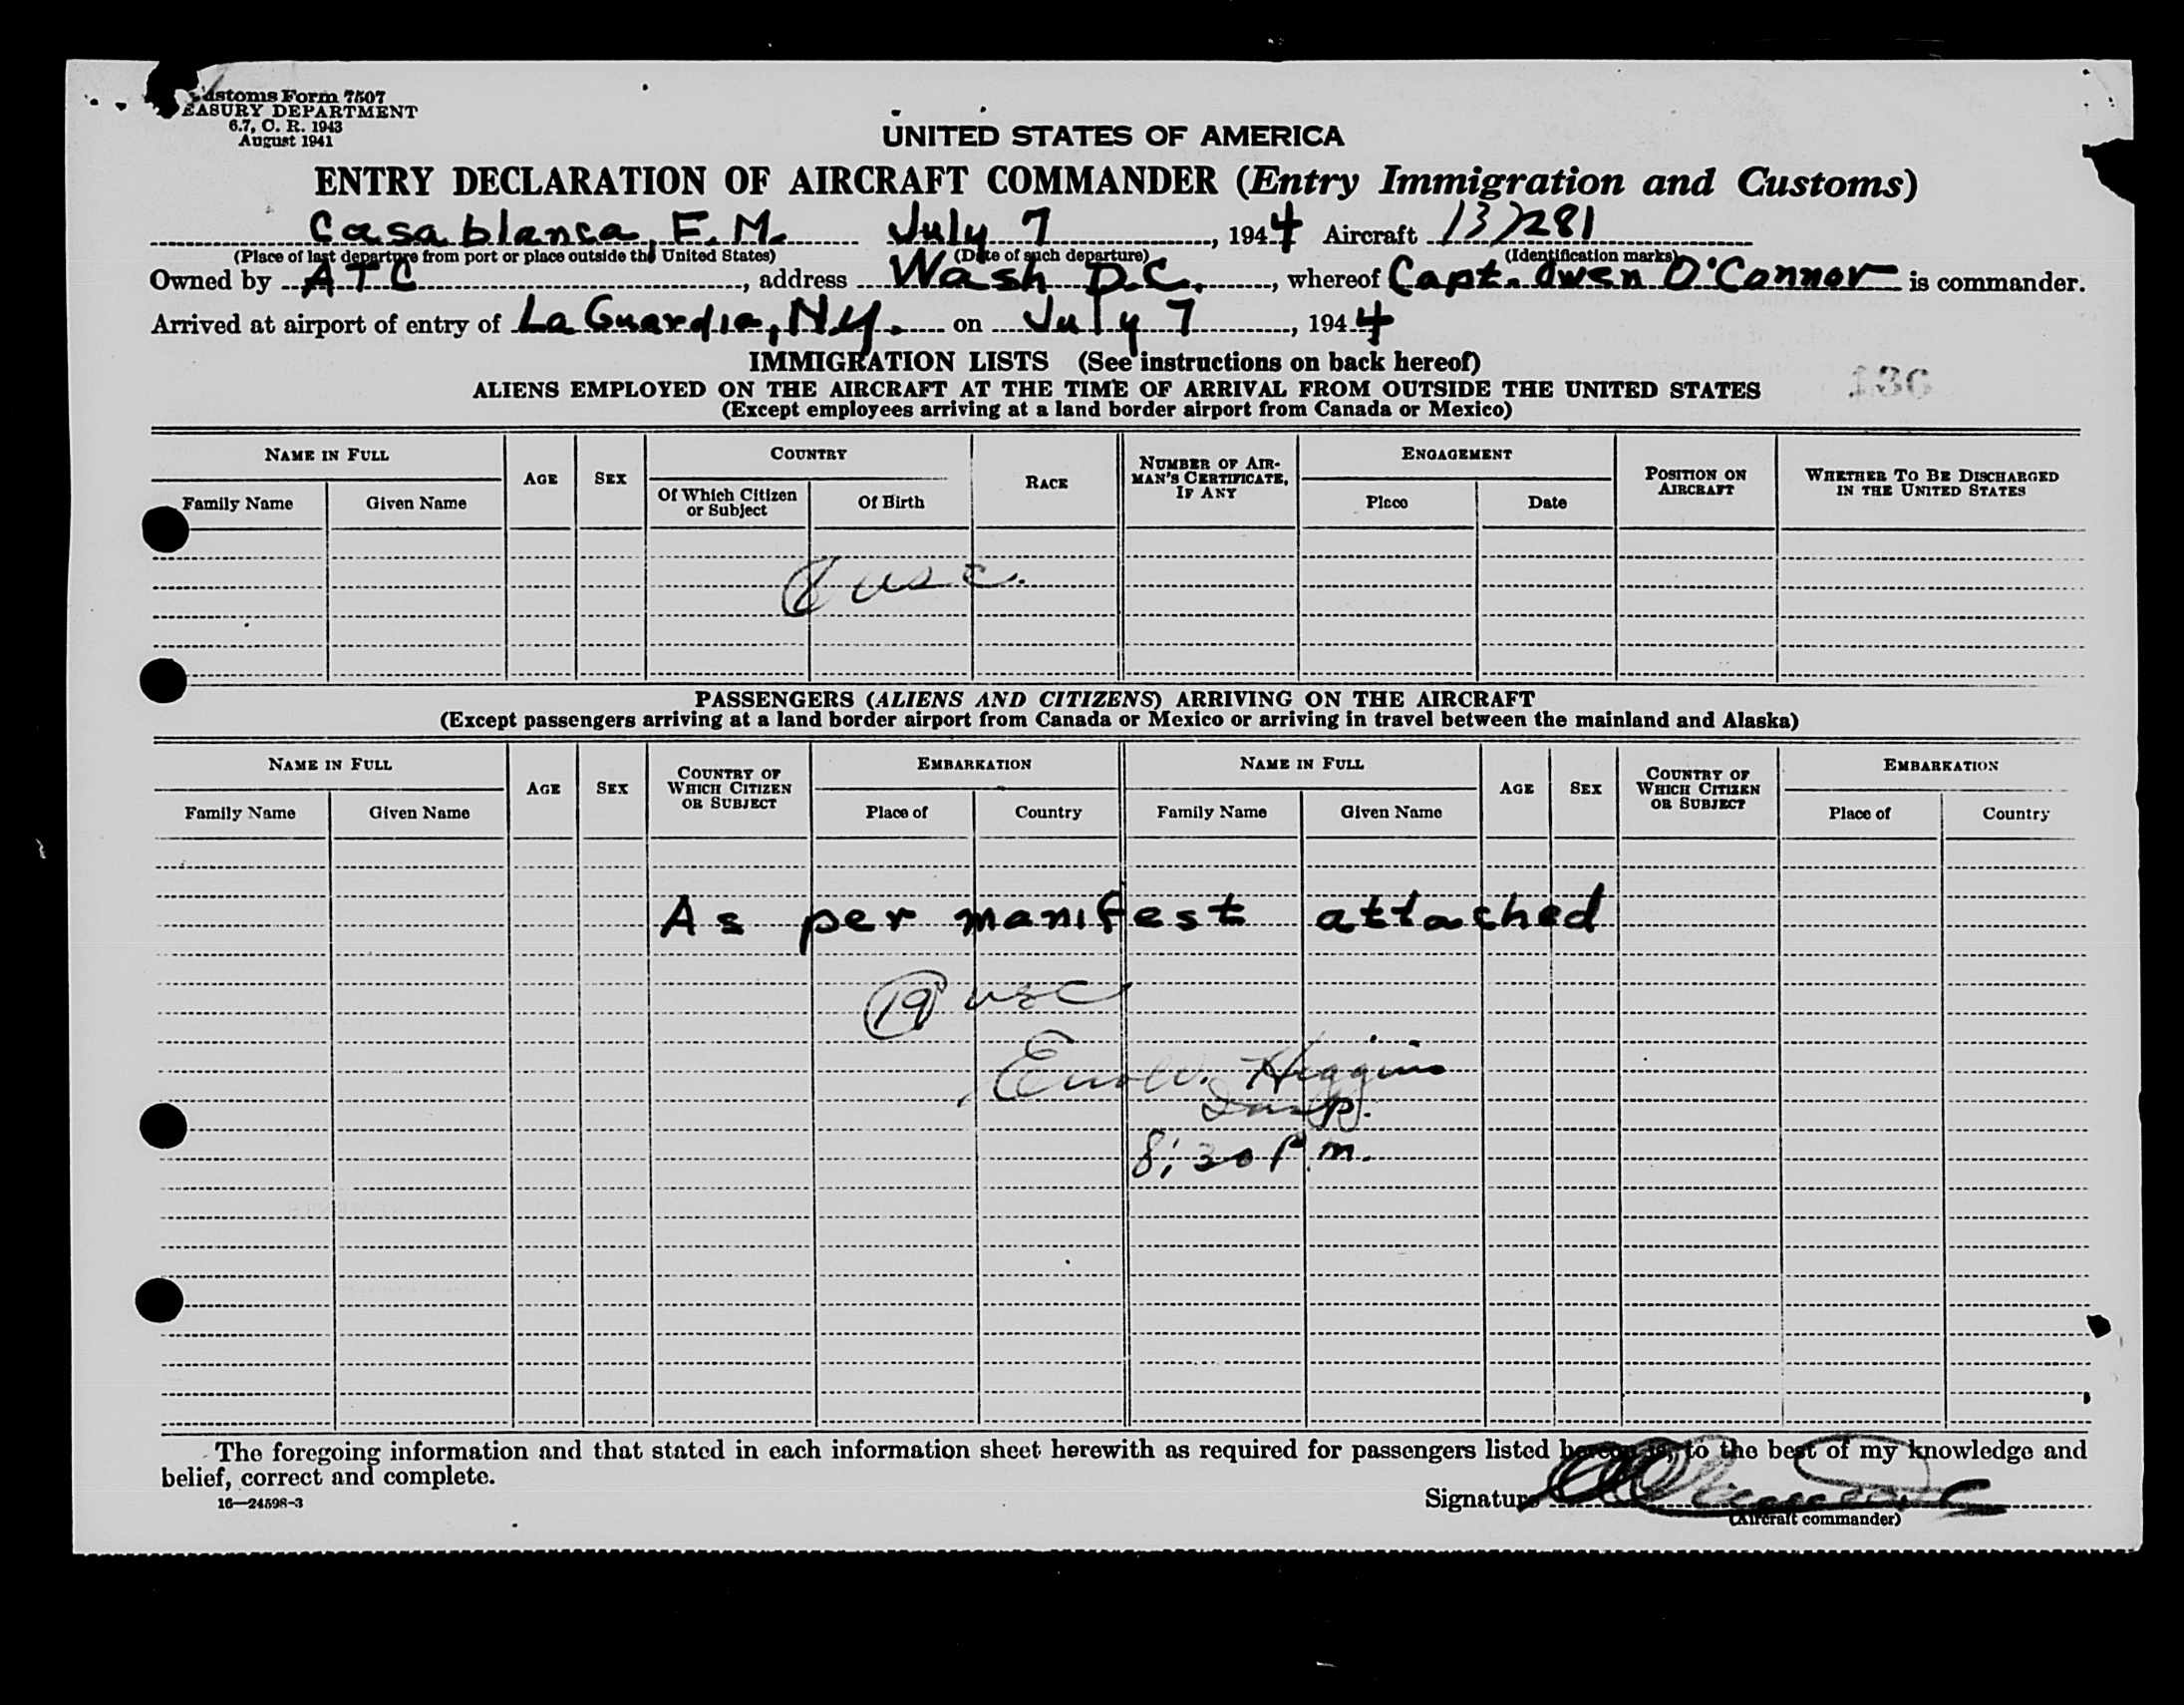 Customs Form 7507
TREASURY DEPARTMENT
6.7, C. R. 1943
August 1941
UNITED STATES OF AMERICA
ENTRY DECLARATION OF AIRCRAFT COMMANDER (Entry Immigration and Customs)
Casablanca, F.M. July 7, 1944 Aircraft 137281
(Place of last departure from port or place outside the United States) (Date of such departure) (Identification marks)
Owned by ATC, address Wash D.C., whereof Capt. Owen O'Connor is commander.
Arrived at airport of entry of La Guardia, N.Y. on July 7, 1944
IMMIGRATION LISTS (See instructions on back hereof)
136
ALIENS EMPLOYED ON THE AIRCRAFT AT THE TIME OF ARRIVAL FROM OUTSIDE THE UNITED STATES
(Except employees arriving at a land border airport from Canada or Mexico)
NAME IN FULL AGE SEX COUNTRY RACE NUMBER OF AIRMAN'S CERTIFICATE, IF ANY ENGAGEMENT POSITION ON AIRCRAFT WHETHER TO BE DISCHARGED IN THE UNITED STATES
Family Name Given Name Of Which Citizen or Subject Of Birth Place Date
8 usc.
PASSENGERS (ALIENS AND CITIZENS) ARRIVING ON THE AIRCRAFT
(Except passengers arriving at a land border airport from Canada or Mexico or arriving in travel between the mainland and Alaska)
NAME IN FULL AGE SEX COUNTRY OF WHICH CITIZEN OR SUBJECT EMBARKATION NAME IN FULL AGE SEX COUNTRY OF WHICH CITIZEN OR SUBJECT EMBARKATION
Family Name Given Name Place of Country Family Name Given Name Place of Country
As per manifest attached
19 usc
Higgins
8:30 P.m.
The foregoing information and that stated in each information sheet herewith as required for passengers listed hereon is, to the best of my knowledge and
belief, correct and complete.
16—24598-3
Signature
(Aircraft commander)